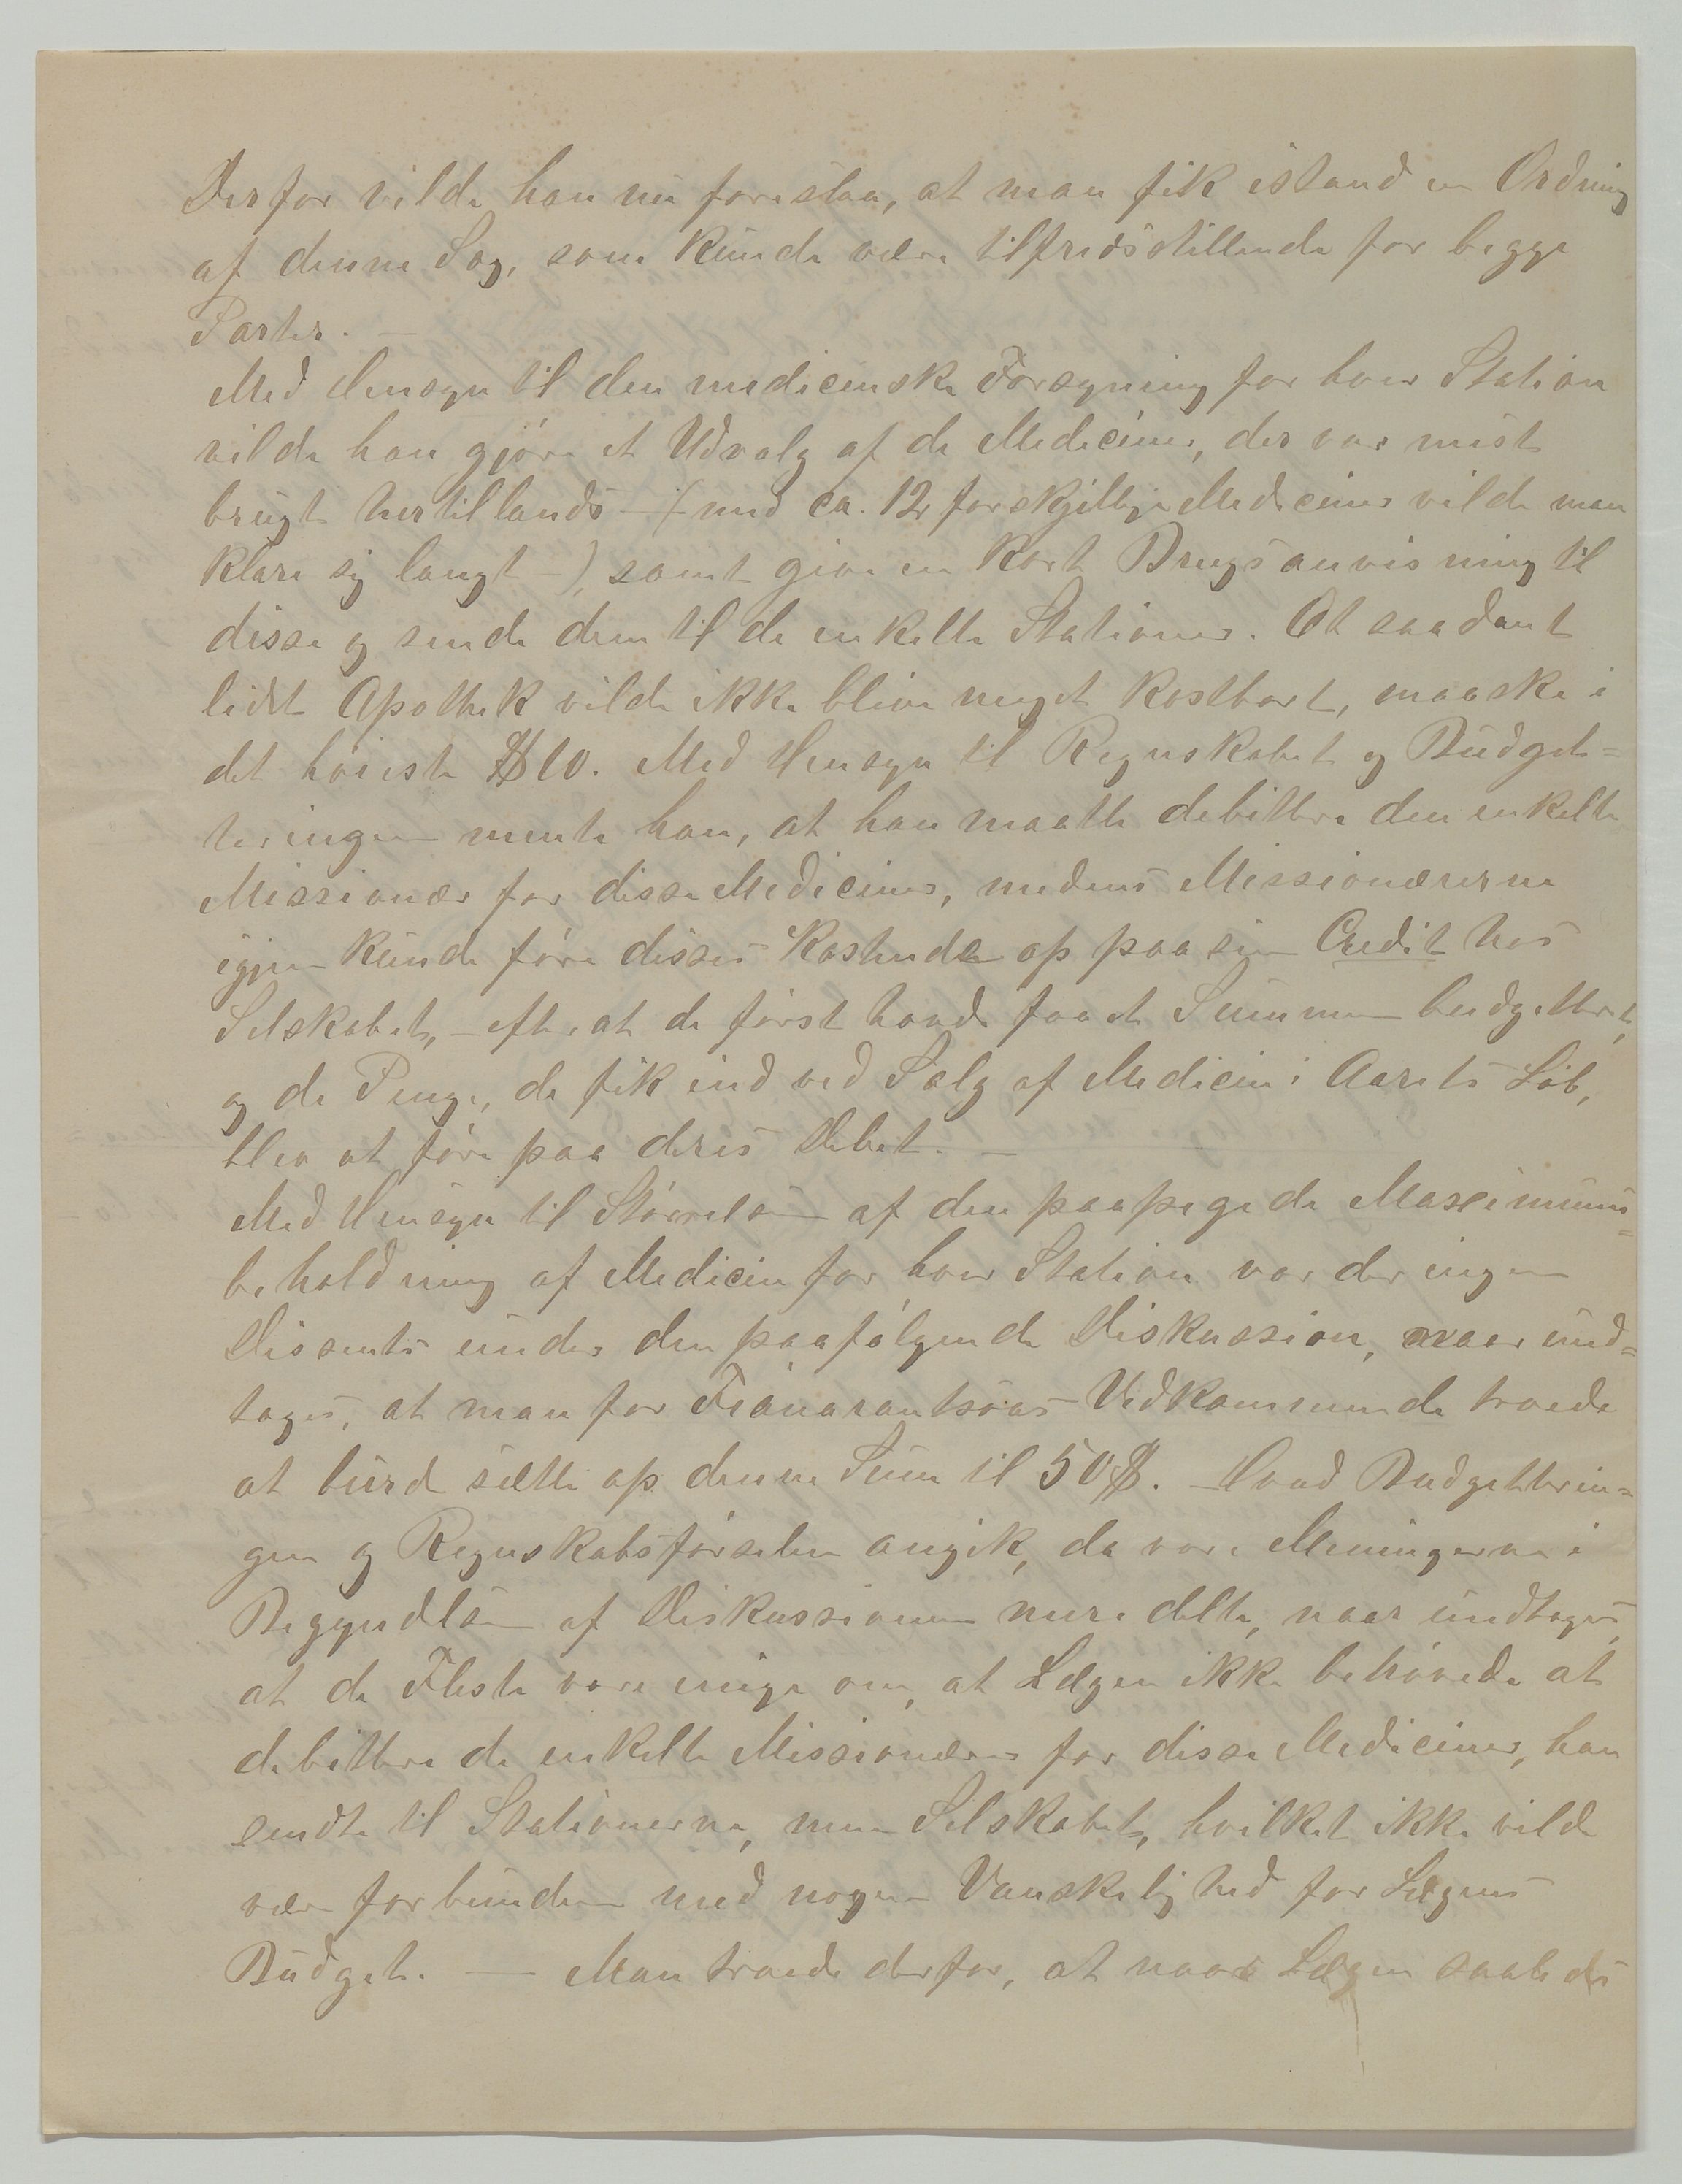 Derfor vilde han nu foreslaa, at man fik istand en Ordning
af denne Sag, som kunde være tilfredsstillende for begge
Parter. —
Med Hensyn til den medicinske Forsyning for hver Station
vilde han gjøre et Udvalg af de Mediciner, der var mest
brugt hertillands – (med ca. 12 forskjellige Mediciner vilde man
klare sig langt –), samt give en kort Brugsanvisning til
disse og sende dem til de enkelte Stationer. Et saadant
lidet Apothek vilde ikke blive meget kostbart, maaske i
det høieste $10. Med Hensyn til Regnskabet og Budget=
teringen mente han, at han maatte debittere den enkelte
Missionær for disse Mediciner, medens Missionærerne
igjen kunde føre disses Kostende op paa sin Credit hos
Selskabet, – efterat de først havde faaet Summen budgetteret,
og de Penge, de fik ind ved Salg af Medicin i Aarets Løb,
blev at føre paa deres Debet. —
Med Hensyn til Størrelsen af den paapegede Maximums=
beholdning af Medicin for hver Station var der ingen
Dissents under den paafølgende Diskussion, naar und=
tages, at man for Fianarantsoas Vedkommende troede
at burde sætte op denne Sum til 50$. – Hvad Budgetterin=
gen og Regnskabsførselen angik, da vare Meningerne i
Begyndelsen af Diskussionen mere delte, naar undtages,
at de Fleste vare enige om, at Lægen ikke behøvede at
debittere de enkelte Missionærer for disse Mediciner, han
sendte til Stationerne, men Selskabet, hvilket ikke vilde
være forbunden med nogen Vanskelighed for Lægens
Budget. — Man troede derfor, at naar Lægen saaledes